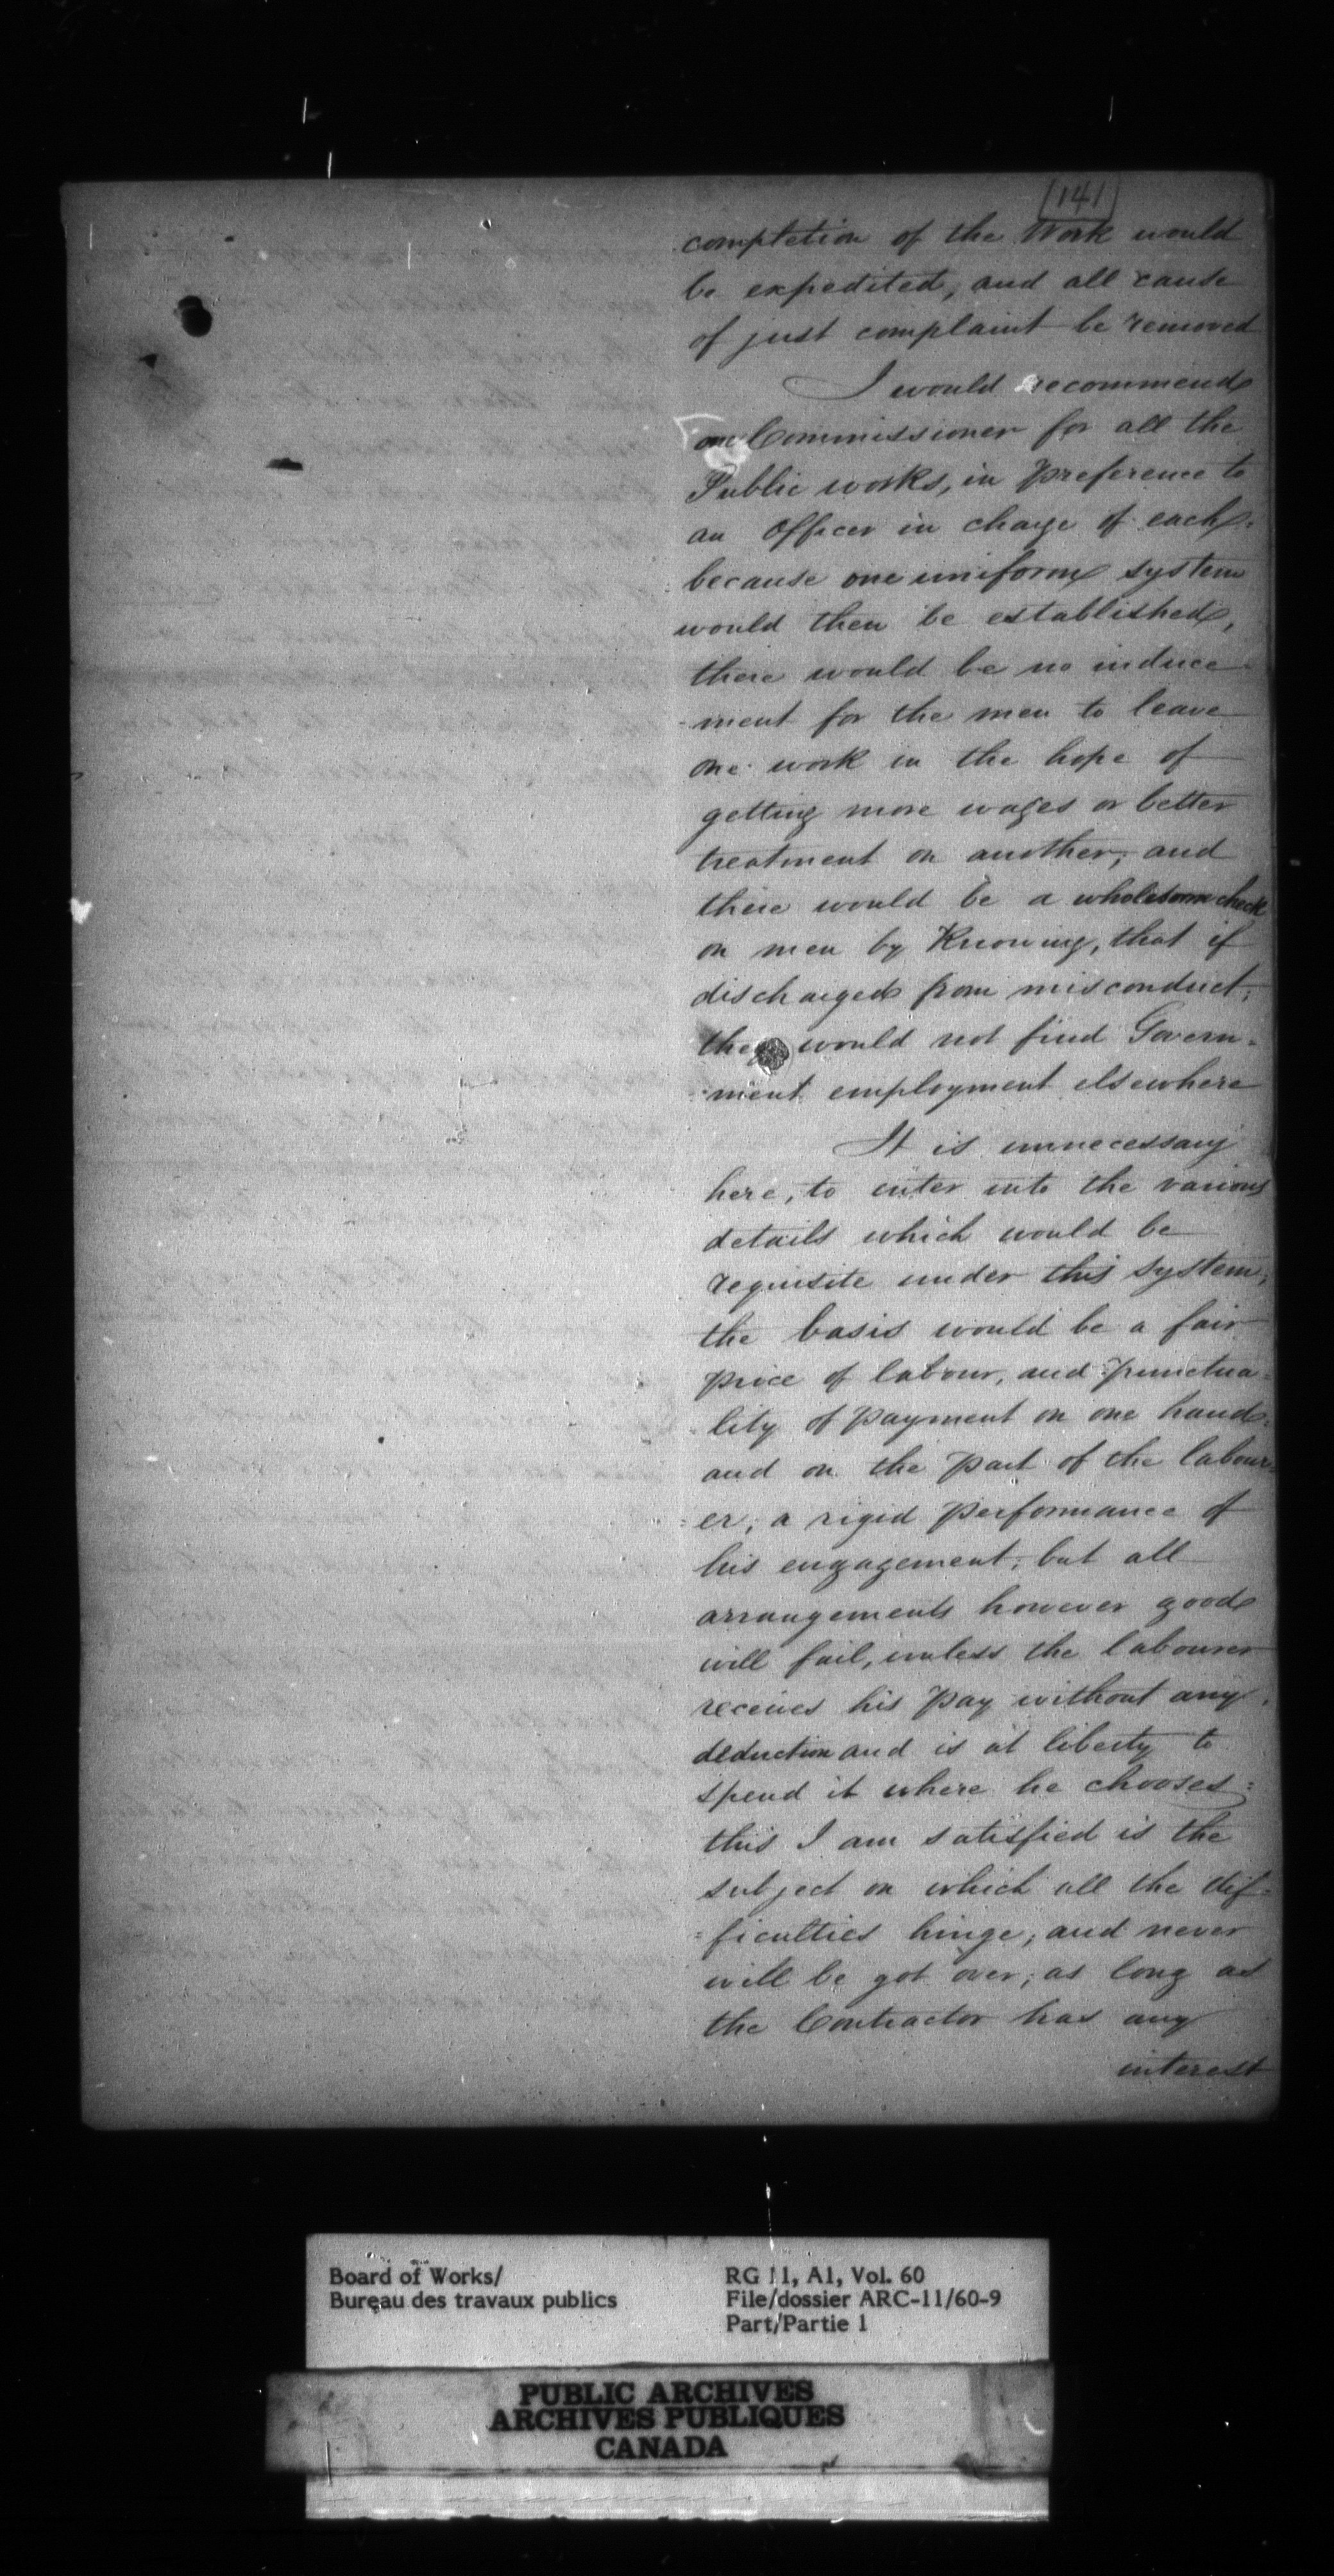 141
completion of the Work would
be expedited, and all cause
of just complaint be removed
I would recommend
one Commissioner for all the
Public works, in preference to
an Officer in charge of each,
because one uniform system
would then be established,
there would be no induce
-ment for the men to leave
one work in the hope of
getting more wages or better
treatment on another, and
there would be a wholesome check
on men by Knowing, that if
discharged from misconduct,
they would not find Govern-
-ment employment elsewhere
It is unnecessary
here, to enter into the various
details which would be
requisite under this system,
the basis would be a fair
price of labour, and punctua-
-lity of payment on one hand,
and on the part of the labour-
=er, a rigid performance of
his engagement, but all
arrangements however good
will fail, unless the labourer
receives his pay without any
deduction and is at liberty to
spend it where he chooses:
this I am satisfied is the
subject on which all the dif-
=ficulties hinge, and never
will be got over, as long as
the Contractor has any
interest
Board of Works/
Bureau des travaux publics
RG 11, A1, Vol. 60
File/dossier ARC-11/60-9
Part/Partie 1
PUBLIC ARCHIVES
ARCHIVES PUBLIQUES
CANADA